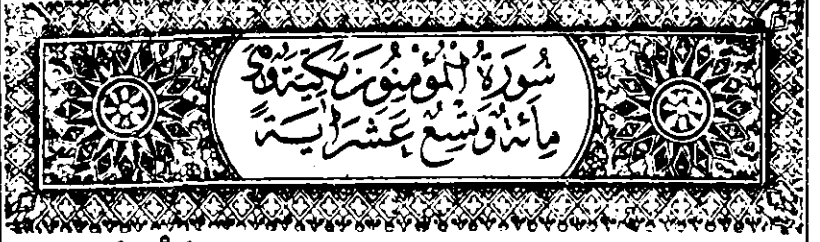 سُورَةُ الْمُؤْمِنُونَ مَكِّيَّةٌ وَهِيَ
مِائَةٌ وَتِسْعَ عَشْرَةَ اٰيَةً